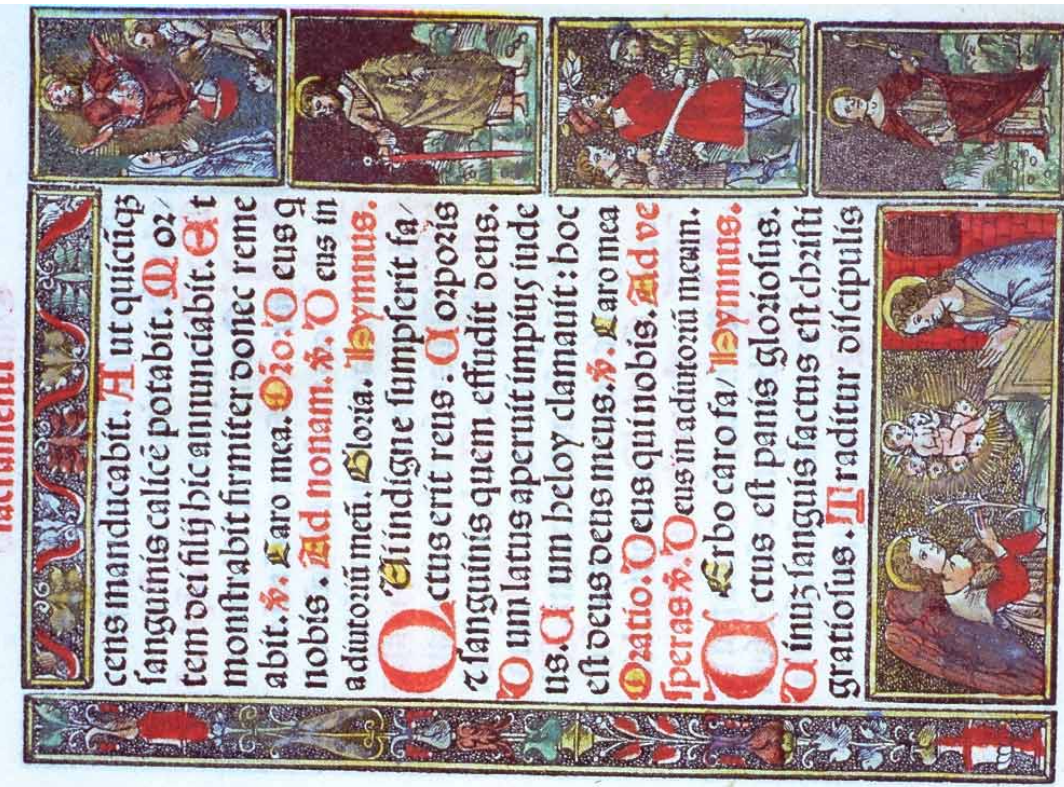 sacramenti
cens manducabit. A ut quicūqꝫ
ſanguinis calicē potabit. M or/
tem dei filij hic annunciabit. E t
monſtrabit firmiter donec reme
abit. ℣. Caro mea. Oro. D eus q
nobis. Ad nonam. ℣. D eus in
adiutoriū meū. Gloria. Hymnus.
QUi indigne ſumpſerit ſa/
ctus erit reus : C orporis
⁊ ſanguinis quem effudit deus.
D um latus aperuit impius iude
us. C um heloy clamauit: hoc
eſt deus deus meus. ℣. Caro mea
Oratio. Deus qui nobis. Ad ve
ſperas ℣. Deus in adiutoriū meum.
VErbo caro fa/ Hymnus.
ctus eſt panis glorioſus.
Uinuz ſanguis factus eſt chriſti
gratioſus. T raditur diſcipulis